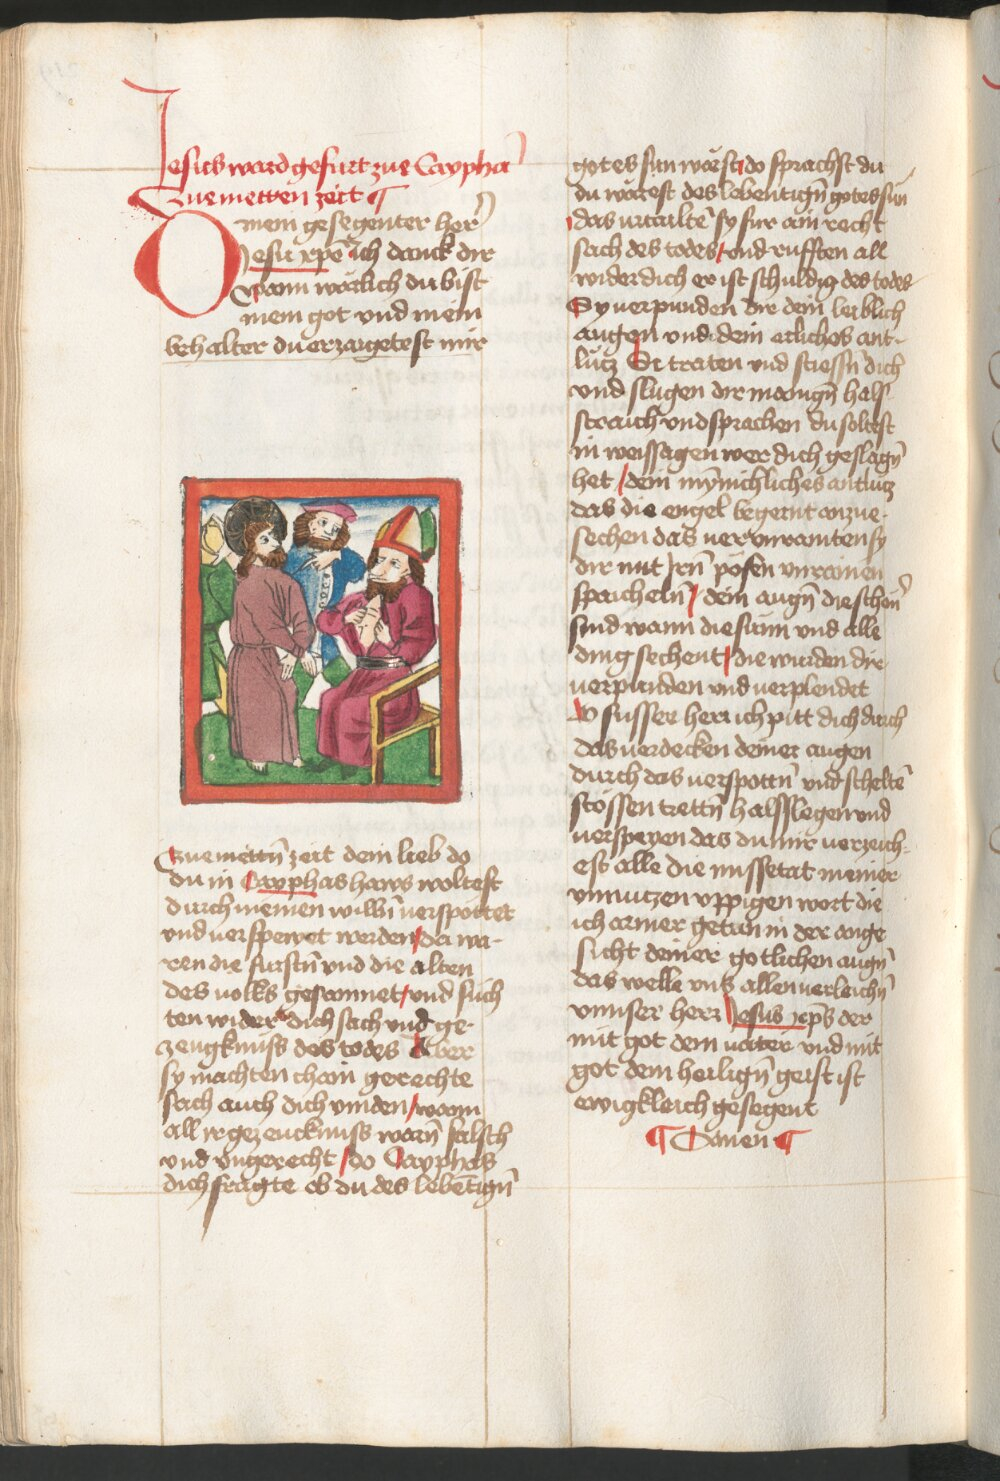 Jesus ward gefurt zue Caypha
Zue metten zeit ¶
O mein gesegenter her
Jesu xpē ich danck dir
wann warlich du bist
mein got vnd mein
behalter du erzaigetest mir
zue mettn̄ zeit dein lieb do
du in Cayphas haws woltest
durch meinen willn̄ verspottet
vnd verspewet werden / da wa-
ren die furstn̄ vnd die alten
des volks gesamnet / vnd such
ten wider dich sach vnd ge-
zeugknuss des todes Aber
sy machten chain gerechte
sach auch dich vinden / wann
all ir gezeucknuss warn̄ falsch
vnd vngerecht / do Cayphas
dich fragte ob du des lebētign̄
gotes sun wärst / do sprachst du
du wärest des lebentign̄ gotes sun
das vrtailtē sy fur ain recht
sach des todes / vnd rufften all
wider dich er ist schuldig des todes
Sy verpunden dir dein leiblich
augen vnd dein erliches ant-
lutz Si traten vnd stiessn̄ dich
vnd slugen dir manign̄ hals
straich vnd sprachen du soltest
in weissagen wer dich geslagn̄
het / dein mȳnichliches antlutz
das die engel begernt anzue-
sechen das verunrainten sy
dir mit Jrn̄ pösen vnrainen
spaicheln̄ / dein augn̄ die schen̄
sind wann die sunn vnd alle
ding sechent / die wurden dir
verpunden vnd verplendet
O susser herr ich pitt dich durch
das verdecken deiner augen
durch das verspottn̄ vnd scheltē
stossen trettn̄ halsslegen vnd
verspeyen das du mir verzeich-
est alle die missetat meiner
vnnutzen vppigen wort die
ich armer getan in der ange
sicht deiner gotlichen augn̄
das welle vns allen verleichn̄
vnnser herr Jesus xp̄s der
mit got dem vater vnd mit
got dem heilign̄ geist ist
ewigkleich gesegent
¶ Amen ¶